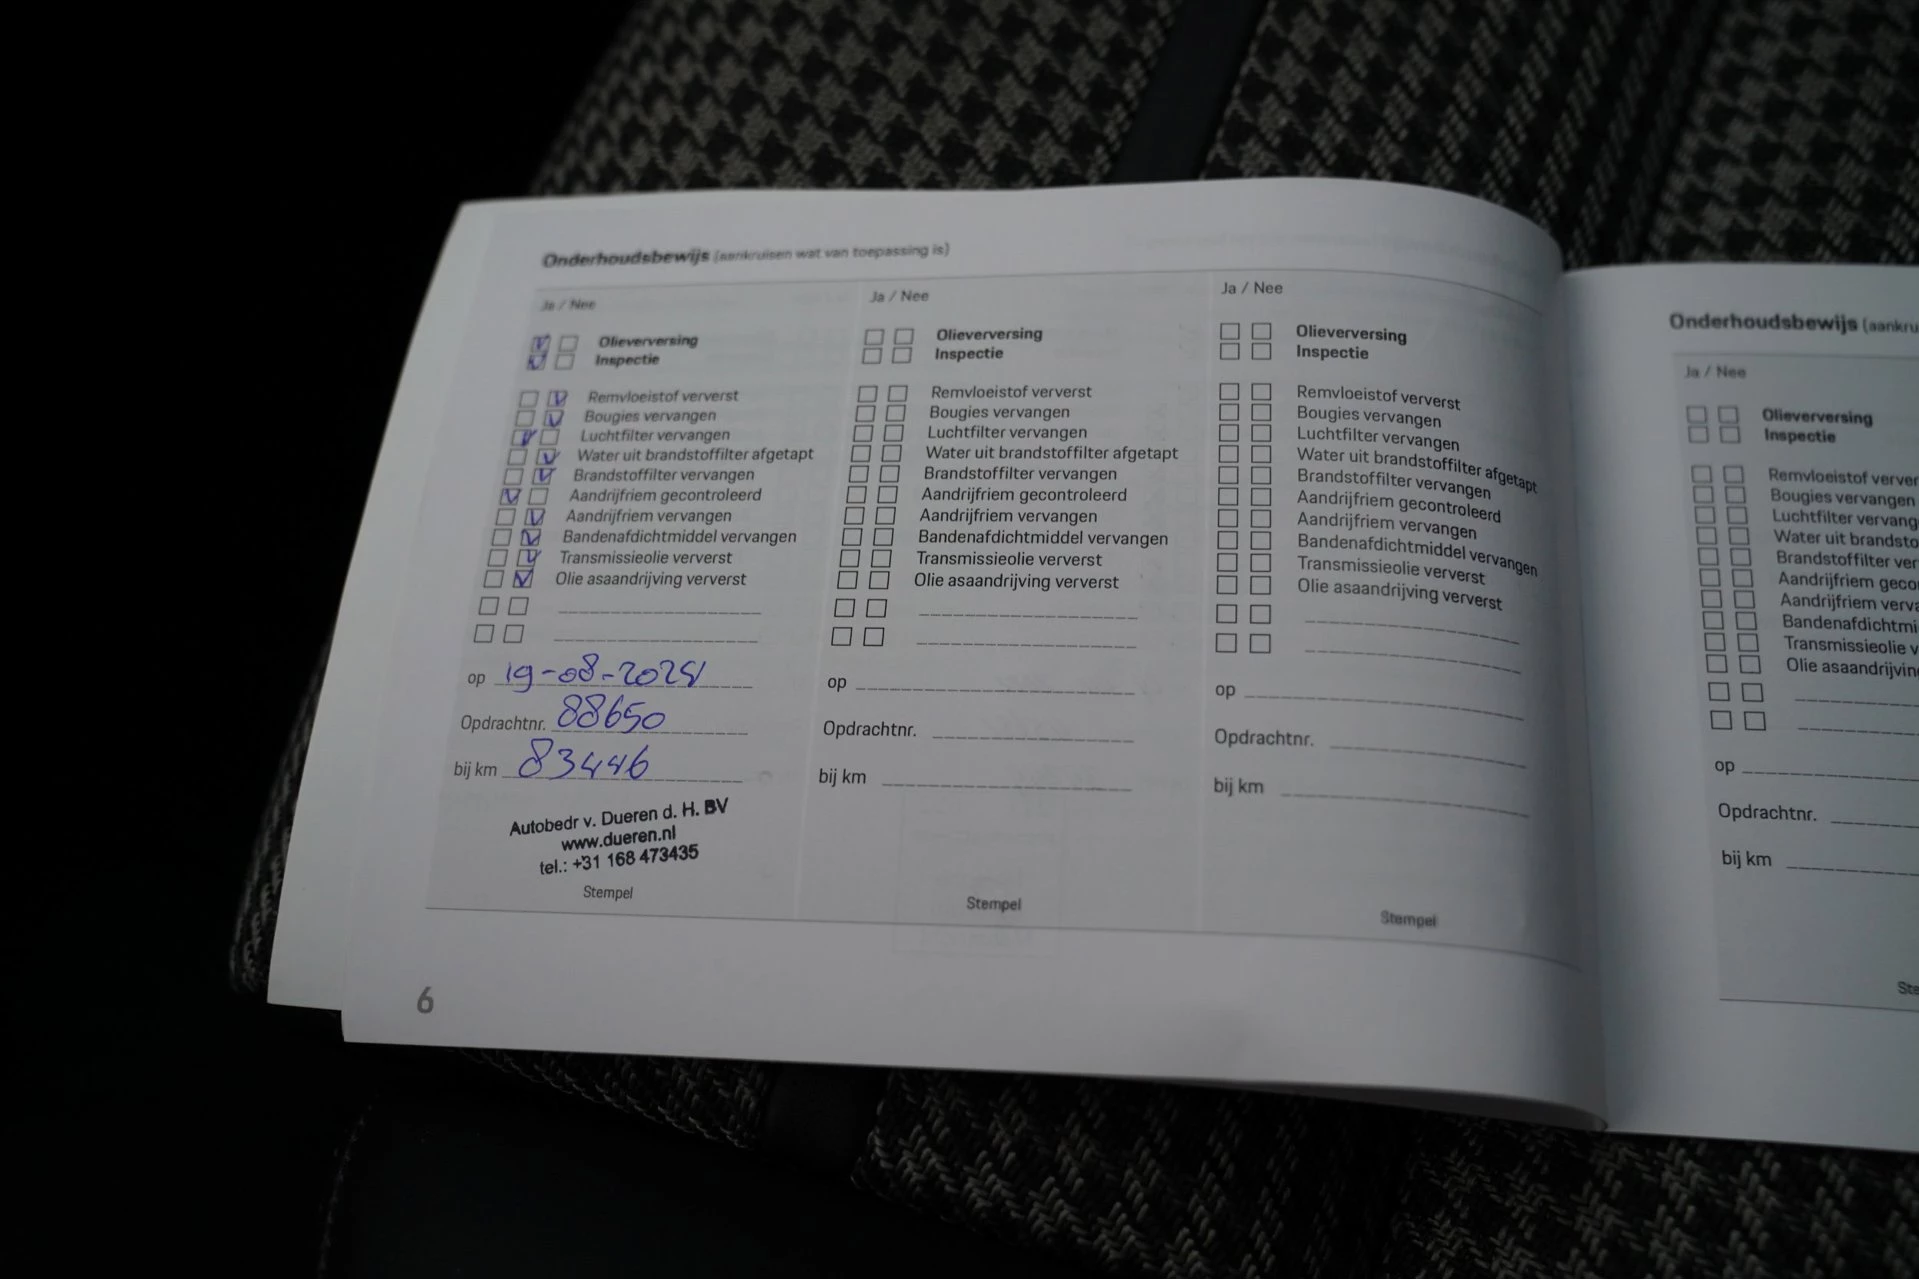 Onderhoudsbewijs (aankruisen wat van toepassing is)
Ja / Nee
Olieverversing
Inspectie
Remvloeistof ververst
Bougies vervangen
Luchtfilter vervangen
Water uit brandstoffilter afgetapt
Brandstoffilter vervangen
Aandrijfriem gecontroleerd
Aandrijfriem vervangen
Bandenafdichtmiddel vervangen
Transmissieolie ververst
Olie asaandrijving ververst
op 19-08-2024
Opdrachtnr. 88650
bij km 83446
Autobedr v. Dueren d. H. BV
www.dueren.nl
tel.: +31 168 473435
Stempel
Ja / Nee
Olieverversing
Inspectie
Remvloeistof ververst
Bougies vervangen
Luchtfilter vervangen
Water uit brandstoffilter afgetapt
Brandstoffilter vervangen
Aandrijfriem gecontroleerd
Aandrijfriem vervangen
Bandenafdichtmiddel vervangen
Transmissieolie ververst
Olie asaandrijving ververst
op
Opdrachtnr.
bij km
Stempel
Ja / Nee
Olieverversing
Inspectie
Remvloeistof ververst
Bougies vervangen
Luchtfilter vervangen
Water uit brandstoffilter afgetapt
Brandstoffilter vervangen
Aandrijfriem gecontroleerd
Aandrijfriem vervangen
Bandenafdichtmiddel vervangen
Transmissieolie ververst
Olie asaandrijving ververst
op
Opdrachtnr.
bij km
Stempel
6
Onderhoudsbewijs (aankru
Ja / Nee
Olieverversing
Inspectie
Remvloeistof verver
Bougies vervangen
Luchtfilter vervang
Water uit brandsto
Brandstoffilter ver
Aandrijfriem geco
Aandrijfriem verva
Bandenafdichtmi
Transmissieolie v
Olie asaandrijvin
op
Opdrachtnr.
bij km
Ste